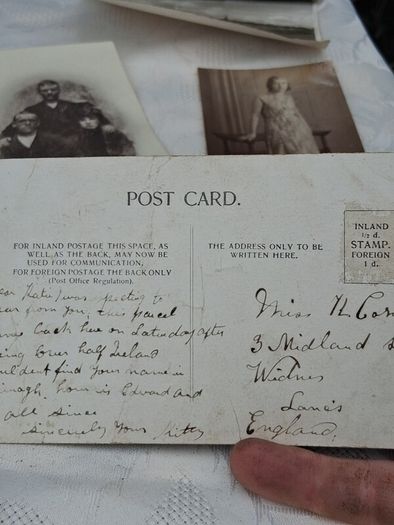 POST CARD.
FOR INLAND POSTAGE THIS SPACE, AS
WELL AS THE BACK, MAY NOW BE
USED FOR COMMUNICATION;
FOR FOREIGN POSTAGE THE BACK ONLY
(Post Office Regulation).
THE ADDRESS ONLY TO BE
WRITTEN HERE.
INLAND
½ d.
STAMP.
FOREIGN
1 d.
ear Katie I was
ear from you, this parcel
back here on Saturday after
ing over half Ireland
uldent find your name in
how is Edward and
all since
Sincerely Yours Kitty
Miss
3 Midland
Widnes
Lancs
England.